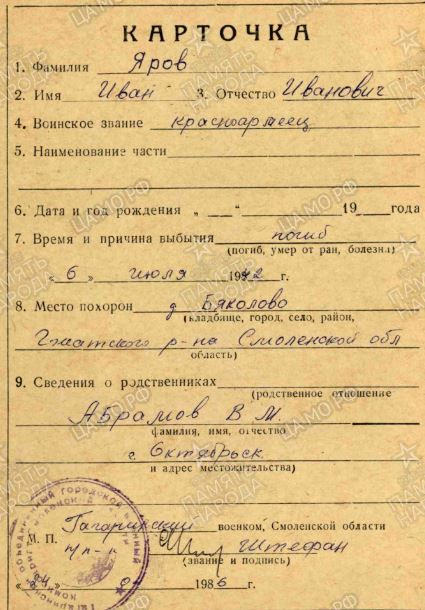 КАРТОЧКА
1. Фамилия Яров
2. Имя Иван 3. Отчество Иванович
4. Воинское звание красноармеец
5. Наименование части
6. Дата и год рождения „ “ 19 года
7. Время и причина выбытия погиб
(погиб, умер от ран, болезни)
„ 6 „ июля 1942 г.
8. Место похорон д. Бяколово
(кладбище, город, село, район,
Гжатского р-на Смоленской обл
область)
9. Сведения о родственниках
(родственное отношение
Абрамов В М.
фамилия, имя, отчество
г. Октябрьск
и адрес местожительства)
Гагаринский военком, Смоленской области
М. П. п/п-к Штефан
(звание и подпись)
1986 г.
ЦАМО.РФ
ПАМЯТЬ НАРОДА